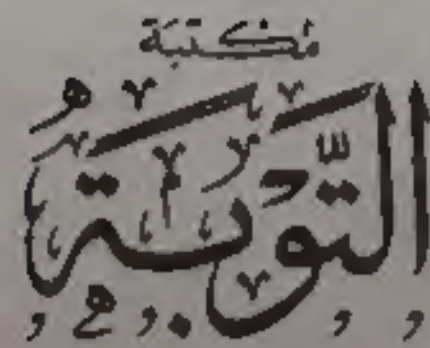 مَكتَبَة
التَّوْبَة